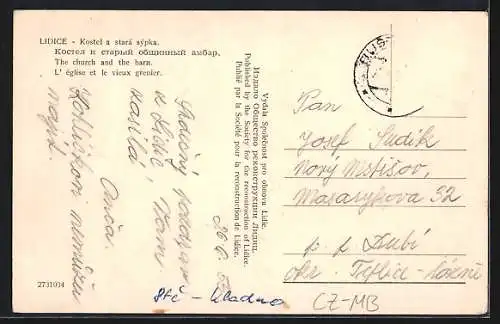 LIDICE - Kostel a stará sýpka.
Костел и старый общинный амбар.
The church and the barn.
L' église et le vieux grenier.
Vydala Společnost pro obnovu Lidic.
Издало Общество реконструкции Лидиц.
Published by the Society for the reconstruction of Lidice.
Publié par la Société pour la reconstruction de Lidice.
Srdečný pozdrav
z Lidic
Vám
Anča.
2731014
Pan
Josef Sudík
Nový Mstišov,
Masarykova 32
p. p. Dubí
okr. Teplice-Lázně
Stč - Kladno
CZ-MB